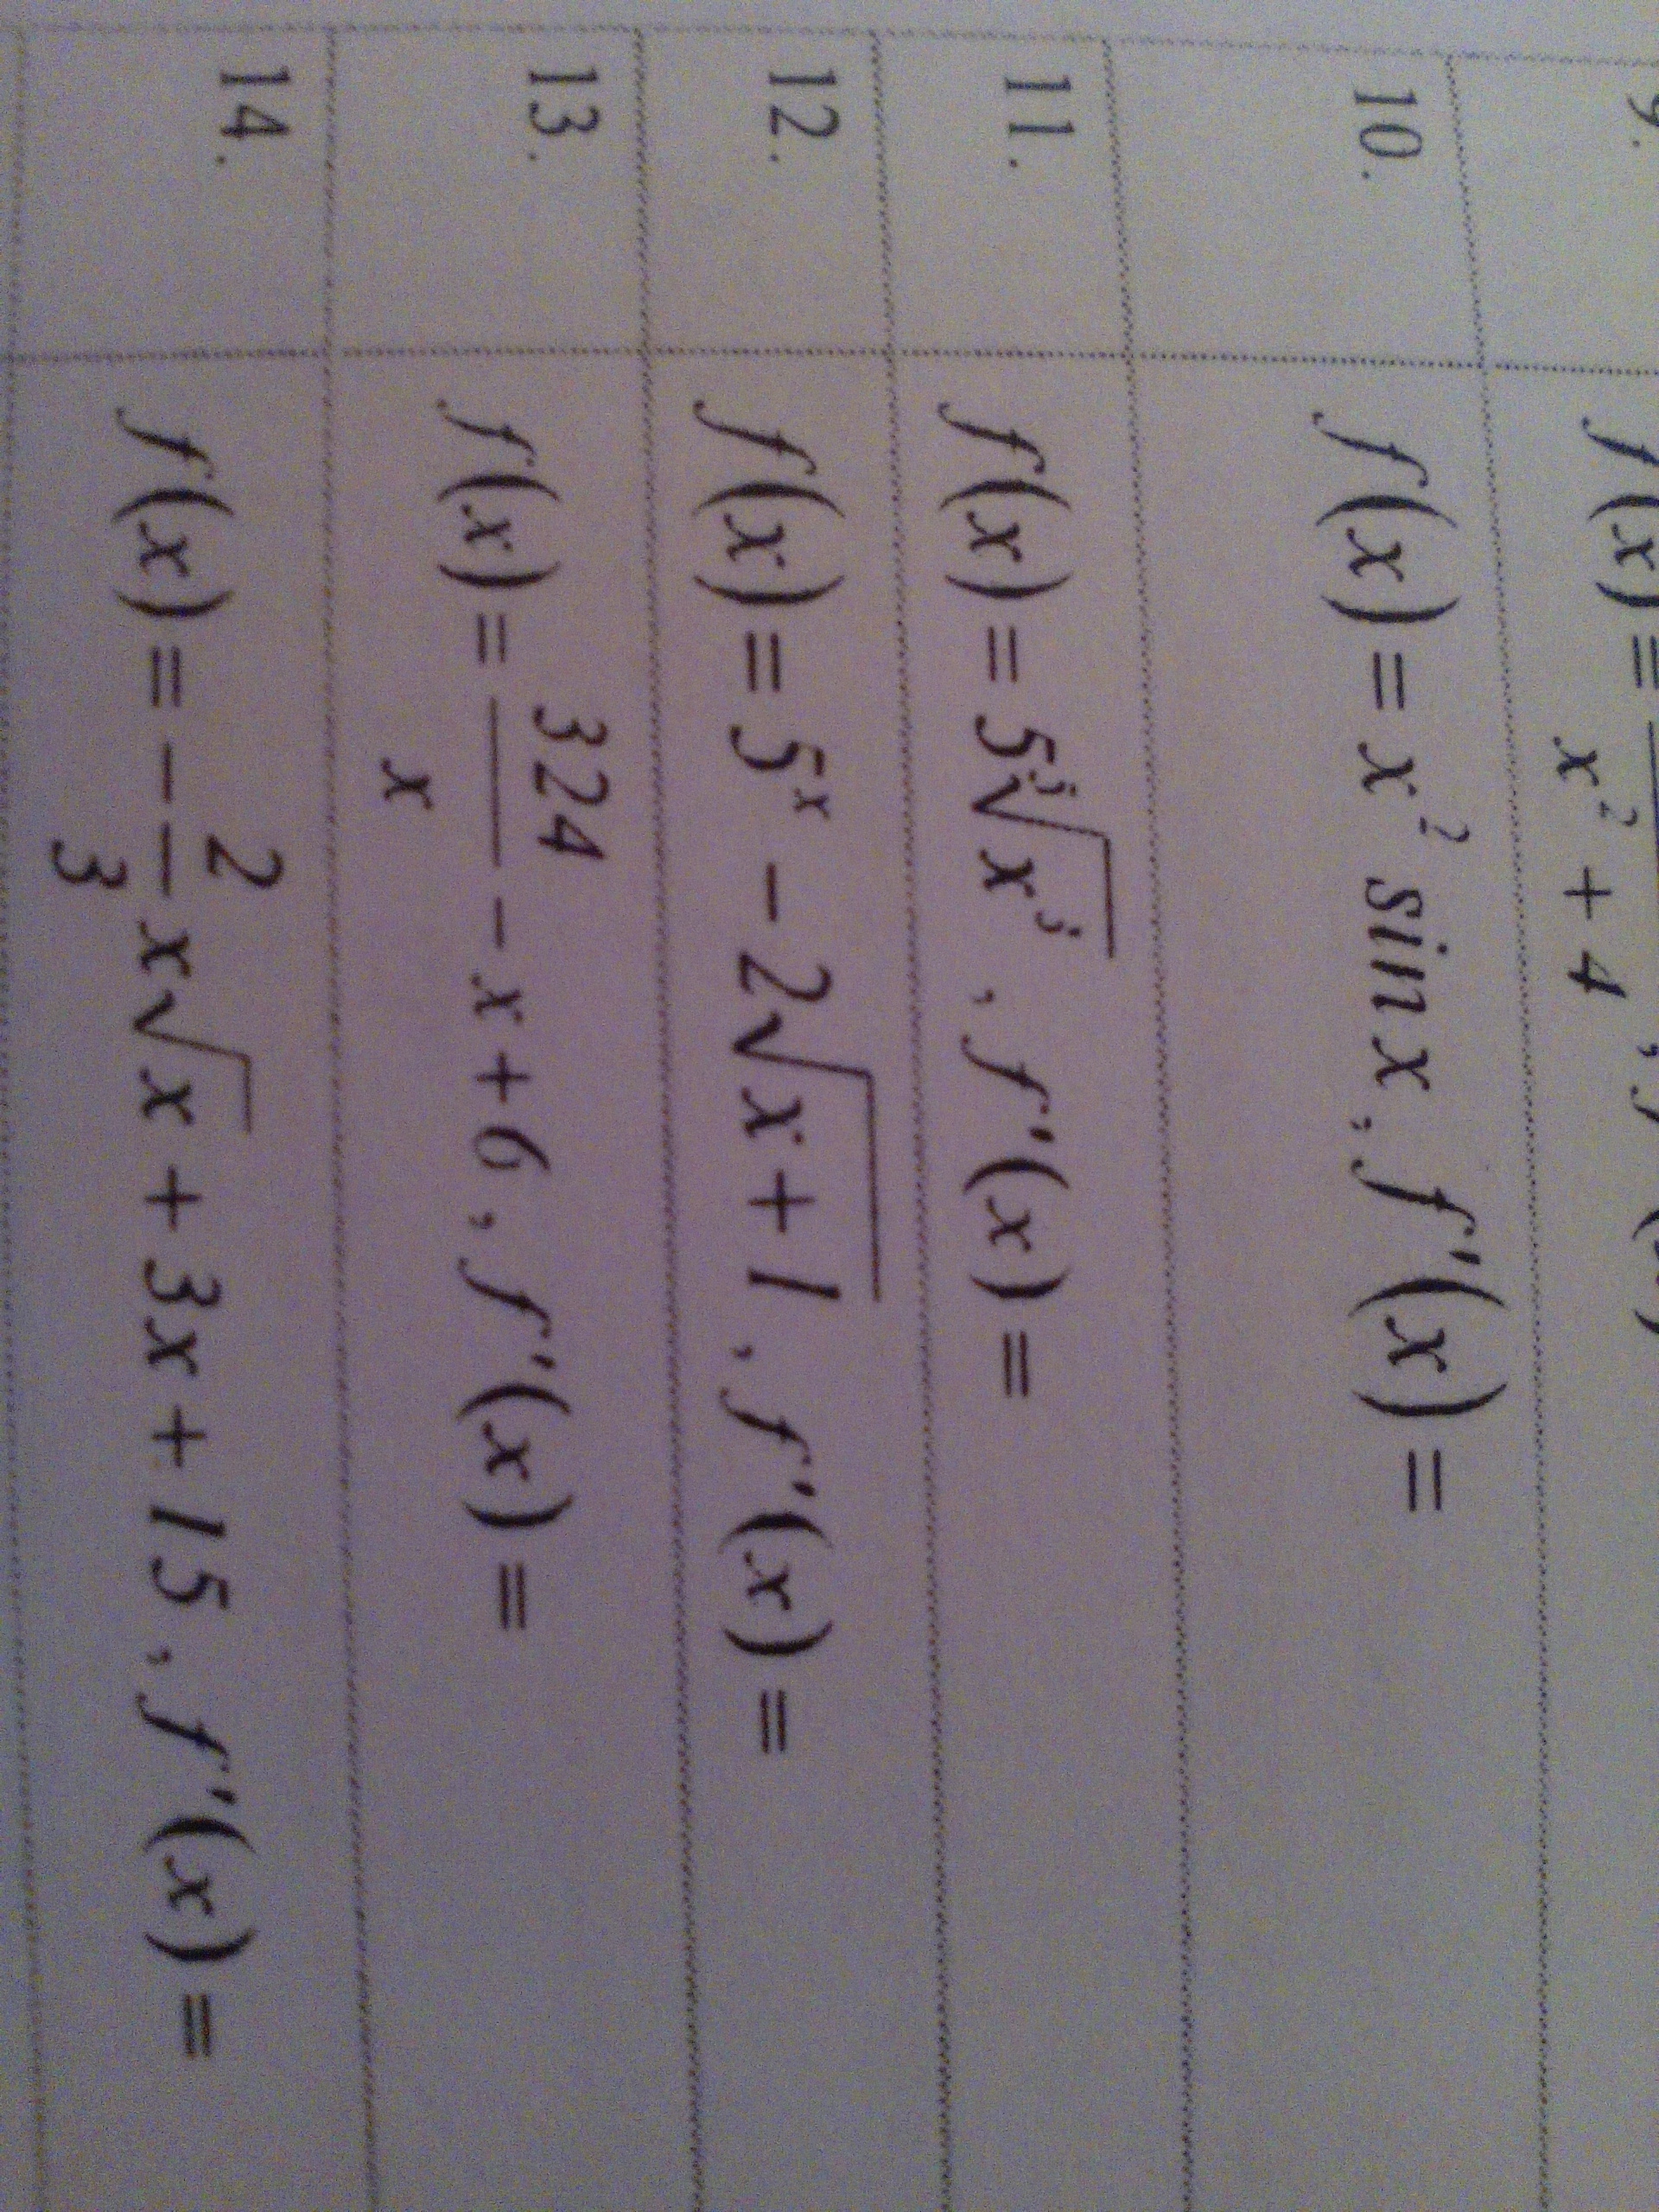 9. f(x) = x² + 4 ,
10. f(x) = x² sin x, f'(x) =
11. f(x) = 5 √x , f'(x) =
12. f(x) = 5ˣ − 2√x + 1 , f'(x) =
13. f(x) = 324/x − x + 6, f'(x) =
14. f(x) = − 2/3 x√x + 3x + 15, f'(x) =